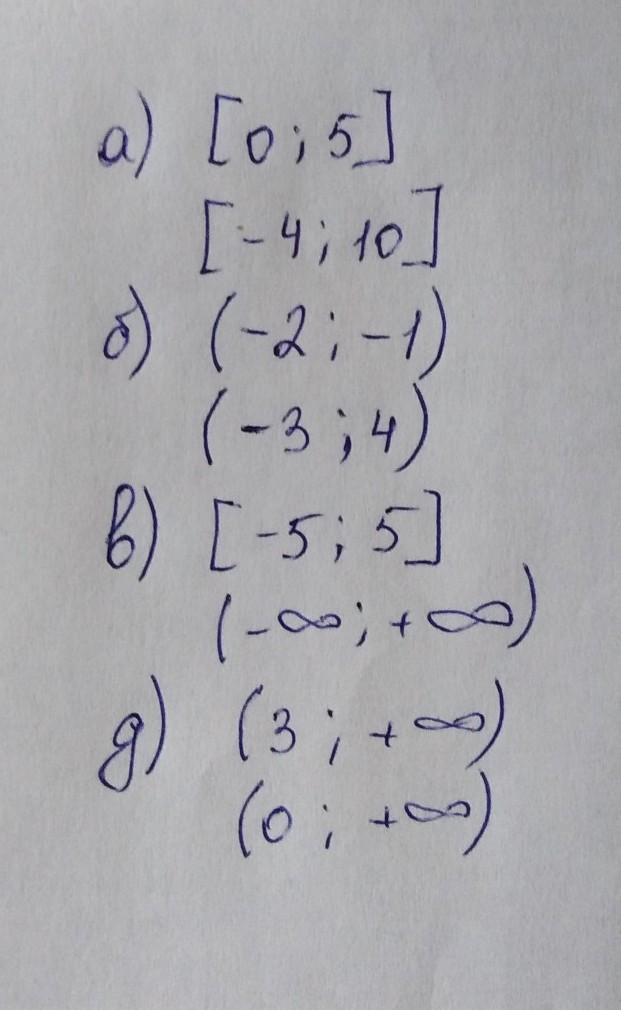 а) [0; 5]
[-4; 10]
б) (-2; -1)
(-3; 4)
в) [-5; 5]
(-∞; +∞)
д) (3; +∞)
(0; +∞)